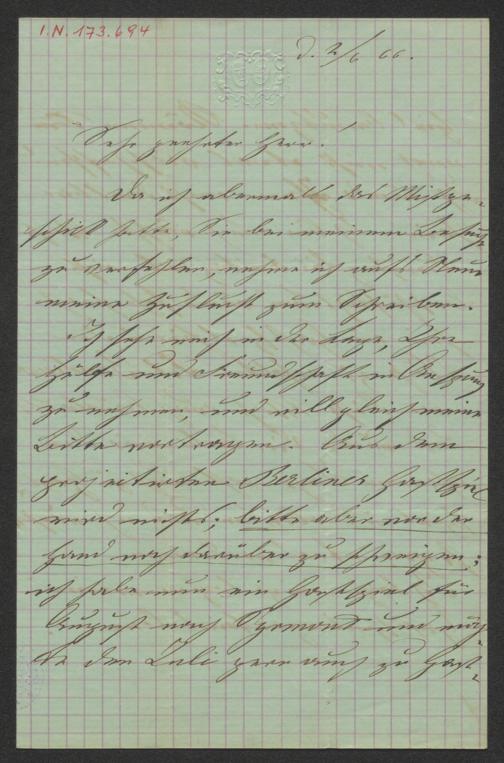 I.N. 173.694
d. 2/6 66.
Sehr geehrter Herr!
Da ich abermals das Mißge-
schick hatte, Sie bei meinem Besuche
zu verfehlen, nehme ich aufs Neue
meine Zuflucht zum Schreiben.
Ich sehe mich in der Lage, Ihre
Hülfe und Freundschaft in Anspruch
zu nehmen, und will gleich meine
Bitte vortragen. Aus dem
projectirten Berliner Gastspiel
wird nichts; bitte aber vor der
Hand noch darüber zu schweigen;
ich habe nun ein Gastspiel für
August nach und möch-
te den Juli gern auch zu Gast-